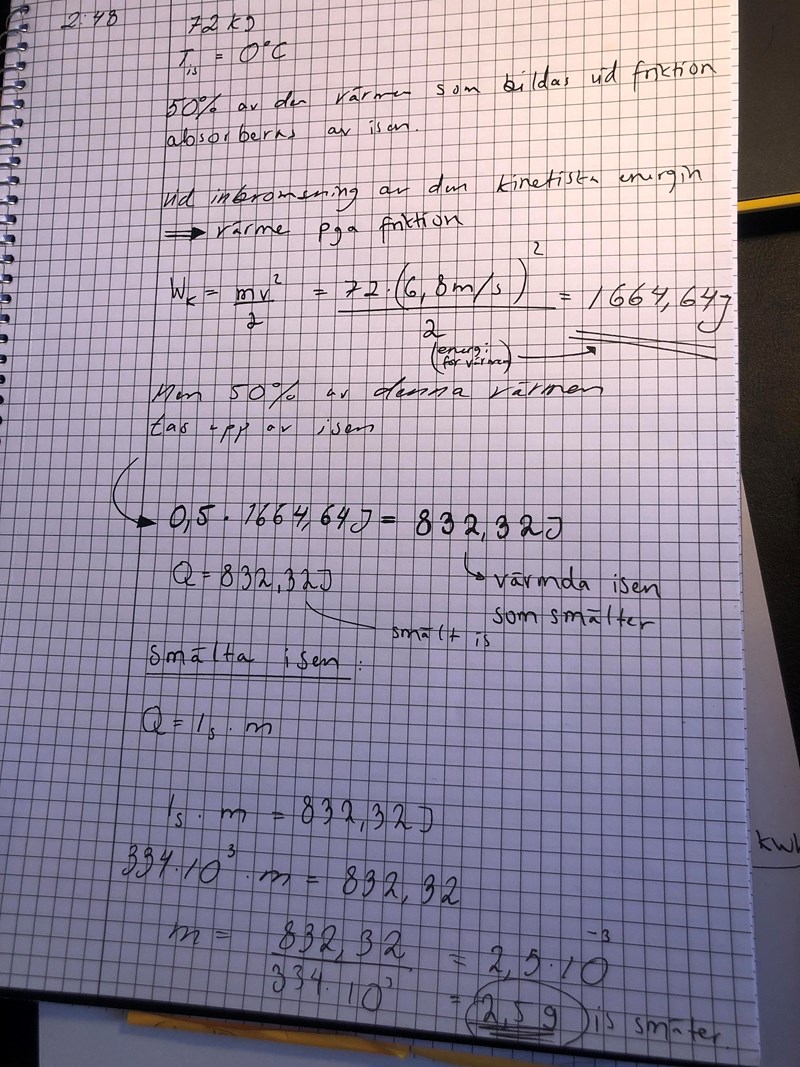 2.48 72 kg
Tis = 0°C
50% av den värmen som bildas vid friktion
absorberas av isen.
vid inbromsning av den kinetiska energin
⟹ värme pga friktion
Wk = mv²/2 = 72·(6,8m/s)²/2 = 1664,64J
(energi för värmen) →
Men 50% av denna värmen
tas upp av isen
0,5 · 1664,64J = 832,32J
Q = 832,32J ↳ värmda isen
som smälter
smält is
smälta isen:
Q = ls · m
ls · m = 832,32J
334·10³ · m = 832,32
m = 832,32/334·10³ = 2,5·10⁻³
= 2,5 g is smäter.
kwh